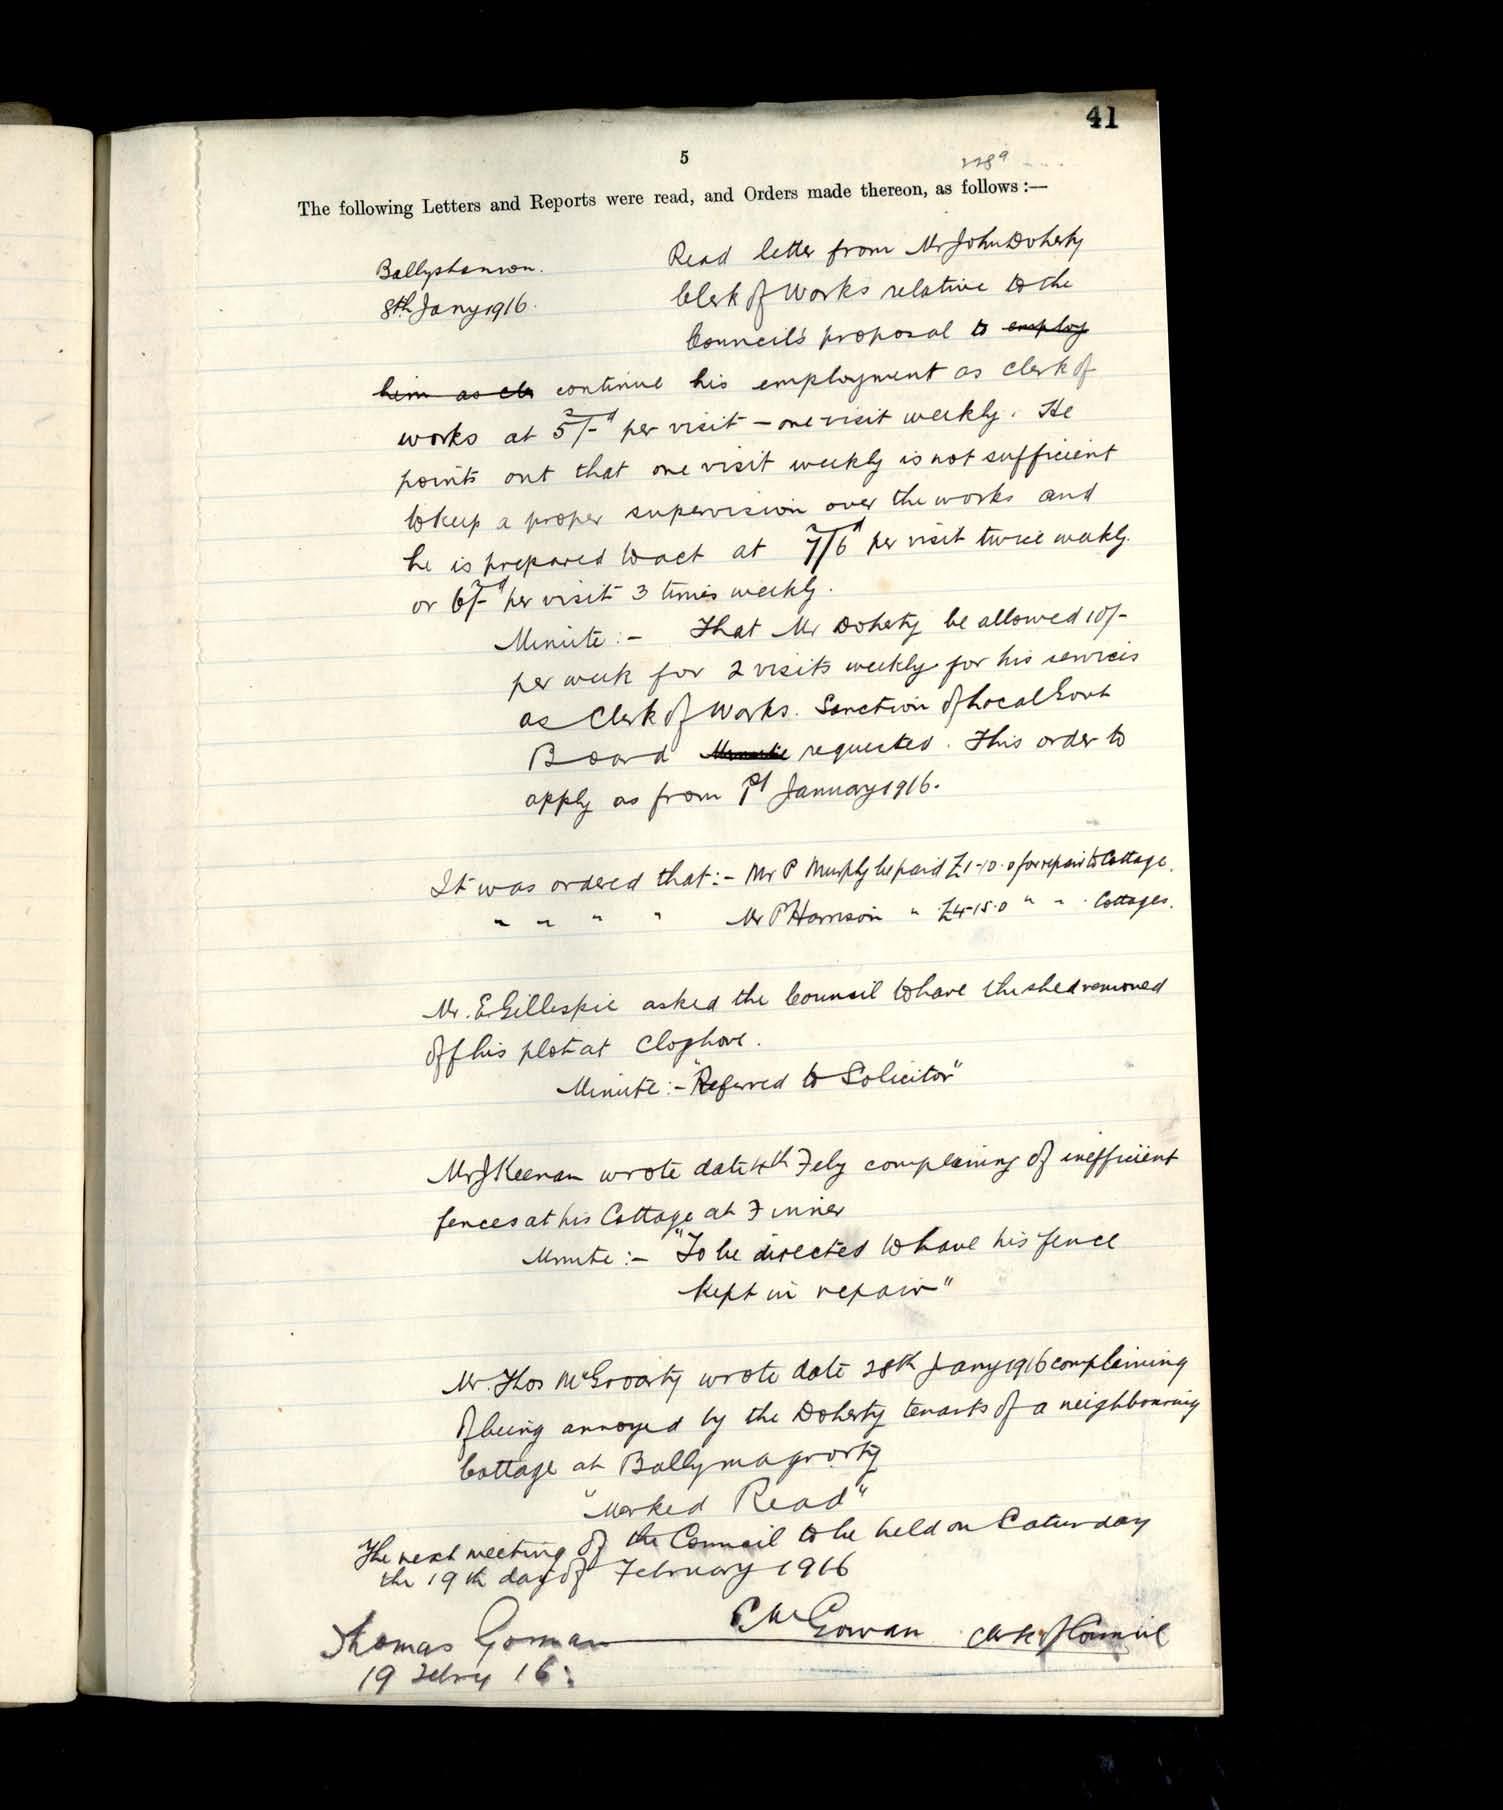 41
5
2289
The following Letters and Reports were read, and Orders made thereon, as follows :—
Ballyshannon.
8th Jany 1916.
Read letter from Mr John Doherty
Clerk of Works relative to the
Council's proposal to employ
him as cle continue his employment as Clerk of
works at 5/- per visit – one visit weekly. He
points out that one visit weekly is not sufficient
to keep a proper supervision over the works and
he is prepared to act at 7/6d per visit twice weekly.
or 6/- per visit 3 times weekly.
Minute :- That Mr Doherty be allowed 10/-
per week for 2 visits weekly for his services
as Clerk of Works. Sanction of Local Govt
Board requested. This order to
apply as from 1st January 1916.
It was ordered that :- Mr P Murphy be paid £1-10-0 for repair to Cottage.
" " " " Mr P Harrison " £4-15-0 " " Cottages.
Mr. E Gillespie asked the Council to have the shed removed
off his plot at Cloghore.
Minute :- "Referred to Solicitor"
Mr J Keenan wrote date 4th Feby complaining of inefficient
fences at his Cottage at Finner
Minute :- "To be directed to have his fence
kept in repair"
Mr. Thos McGroarty wrote date 28th Jany 1916 complaining
of being annoyed by the Doherty tenants of a neighbouring
Cottage at Ballymagrorty
"Marked Read"
The next meeting of the Council to be held on Saturday
the 19th day of February 1916
P. McGowan Clerk of Council
Thomas Gorman
19 Febry 16.